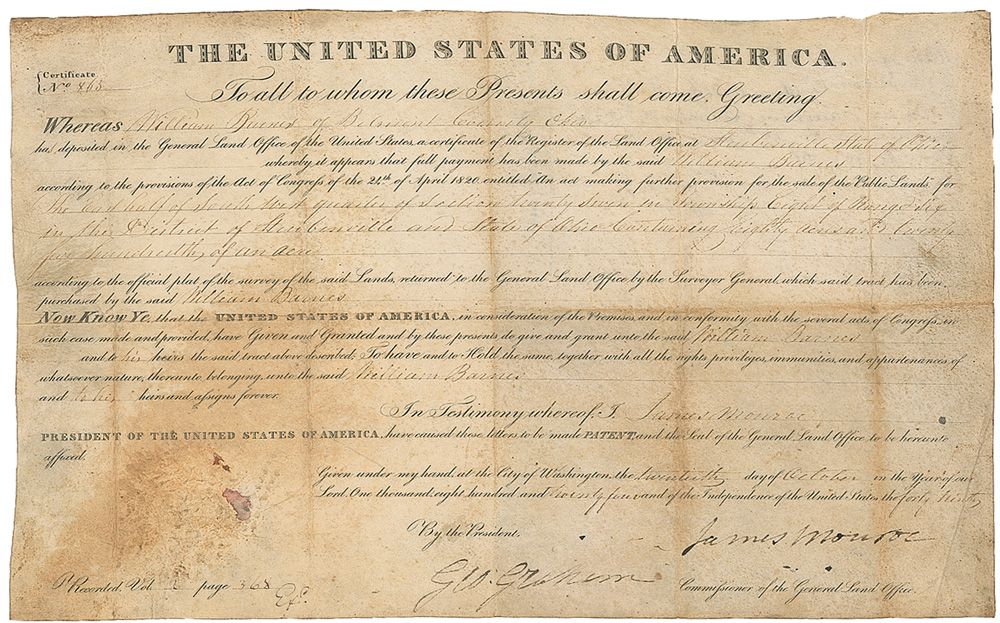 THE UNITED STATES OF AMERICA.
Certificate
No. 865
To all to whom these Presents shall come, Greeting.
Whereas William Barnes of Belmont County Ohio
has deposited in the General Land Office of the United States, a certificate of the Register of the Land Office at Steubenville State of Ohio
whereby it appears that full payment has been made by the said William Barnes
according to the provisions of the Act of Congress of the 24th of April 1820, entitled An act making further provision for the sale of the Public Lands, for
the East half of South West quarter of Section twenty seven in Township Eight of Range Six
in the District of Steubenville and State of Ohio Containing Eighty acres and twenty
five hundredths of an acre
according to the official plat of the survey of the said Lands, returned to the General Land Office by the Surveyor General, which said tract has been
purchased by the said William Barnes
Now Know Ye, that the UNITED STATES OF AMERICA, in consideration of the Premises, and in conformity with the several acts of Congress, in
such case made and provided, have Given and Granted and by these presents do give and grant unto the said William Barnes
and to his heirs the said tract above described; To have and to Hold the same, together with all the rights, privileges, immunities, and appurtenances of
whatsoever nature, thereunto belonging, unto the said William Barnes
and to his heirs and assigns forever.
In Testimony whereof, I, James Monroe
PRESIDENT OF THE UNITED STATES OF AMERICA, have caused these letters to be made PATENT, and the Seal of the General Land Office to be hereunto
affixed.
Given under my hand, at the City of Washington, the twentieth day of October in the Year of our
Lord, One thousand, eight hundred and twenty four and of the Independence of the United States the forty ninth
By the President.
James Monroe
Geo: Graham
Commissioner of the General Land Office.
Recorded, Vol. 2 page 368